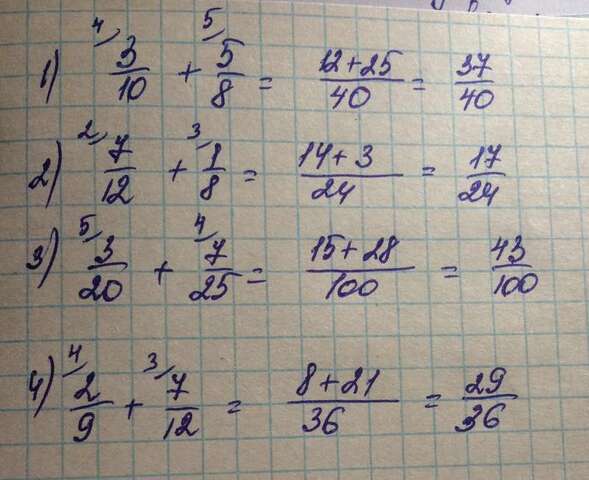 1) 4/ 3/10 + 5/ 5/8 = (12+25)/40 = 37/40
2) 2/ 7/12 + 3/ 1/8 = (14+3)/24 = 17/24
3) 5/ 3/20 + 4/ 7/25 = (15+28)/100 = 43/100
4) 4/ 2/9 + 3/ 7/12 = (8+21)/36 = 29/36